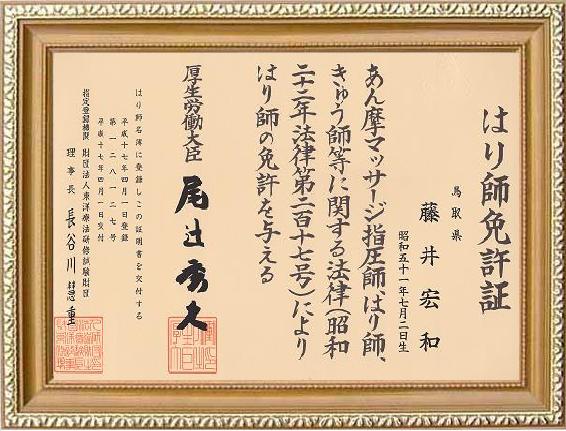 はり師免許証
鳥取県
藤井宏和
昭和五十一年七月二日生
あん摩マッサージ指圧師、はり師、
きゅう師等に関する法律(昭和
二十二年法律第二百十七号)により
はり師の免許を与える
厚生労働大臣 尾辻秀久
はり師名簿に登録しこの証明書を交付する
平成十七年四月一日登録
第一二八一二七号
平成十七年四月一日交付
指定登録機関 財団法人東洋療法研修試験財団
理事長 長谷川慧重